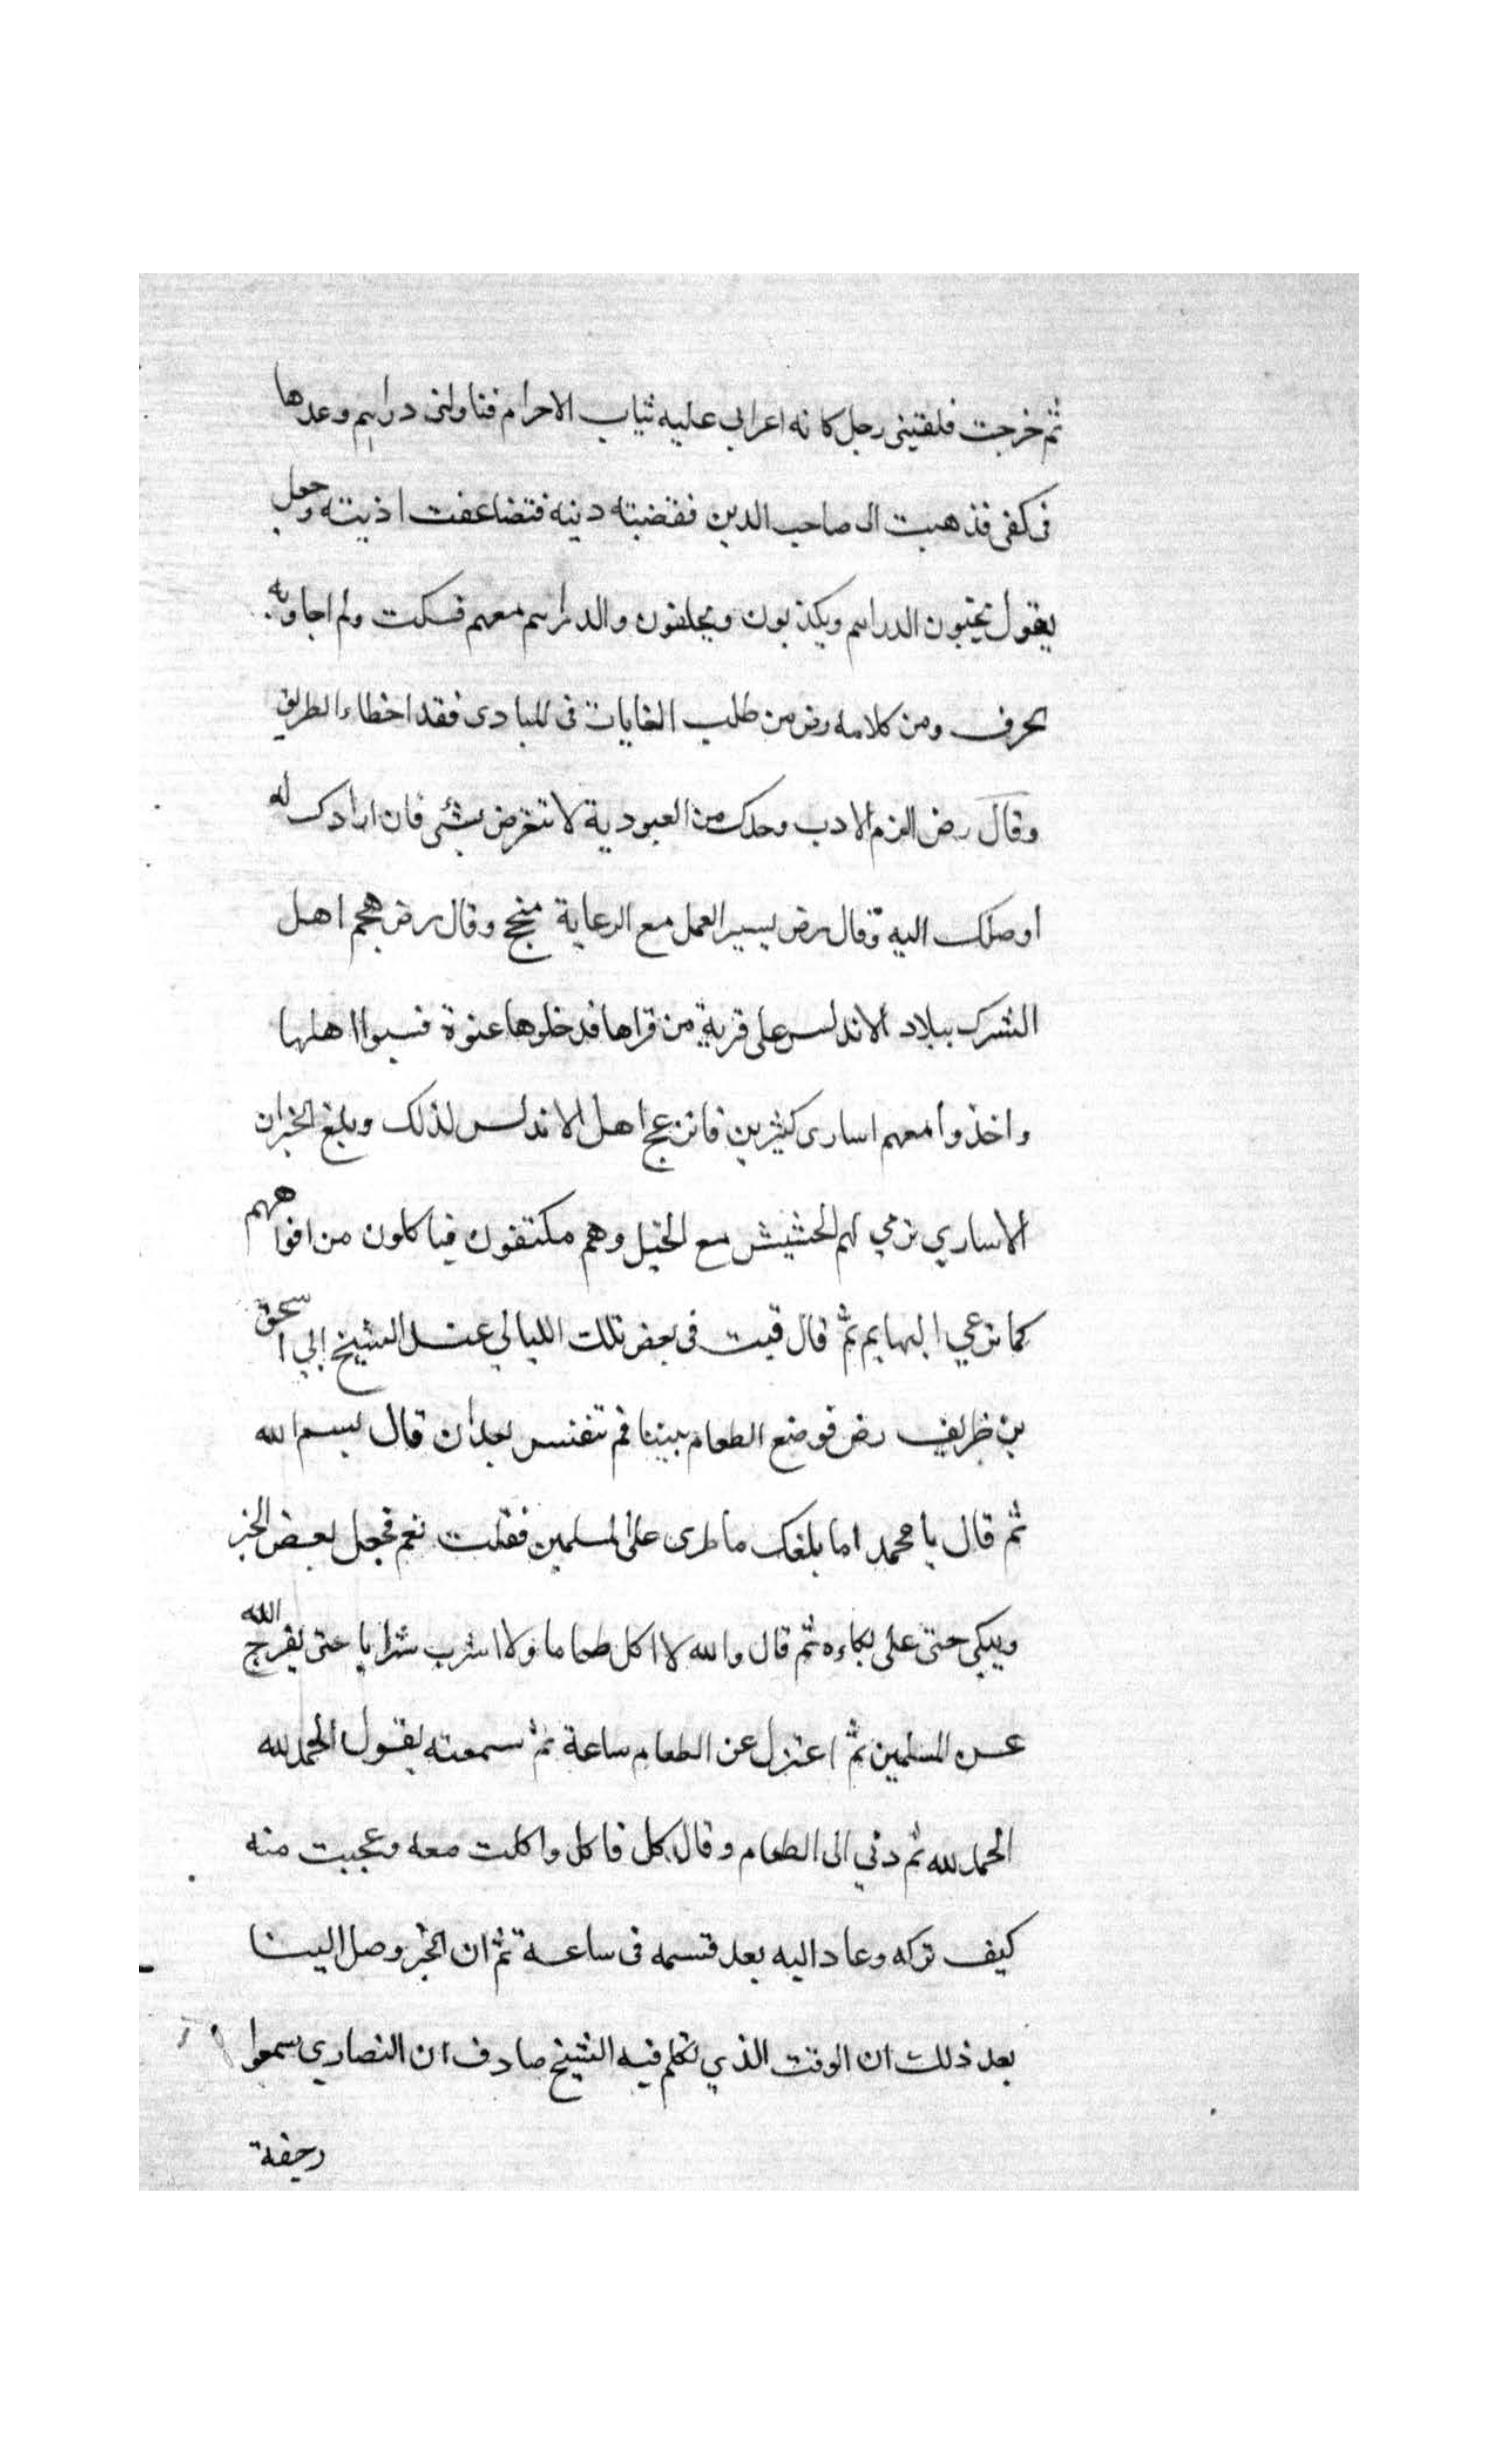 ثم خرجت فلقيني رجل كانه اعرابي عليه ثياب الاحرام فناولني دراهم وعدها
في كفي فذهبت الى صاحب الدين فقضيته دينه فتضاعفت اذيته وجعل
يقول تخبون الدراهم ويكذبون ويحلفون والدراهم معهم فسكت ولم اجاوبه
بحرف ومن كلامه رض من طلب الغايات في المبادى فقد اخطاء الطريق
وقال رض الزم الادب وحدك من العبودية لا تتعرض بشئ فان ارادك له
اوصلك اليه وقال رض يسير العمل مع الرعاية منجح وقال رض هجم اهل
الشرك ببلاد الاندلس على قرية من قراها فدخلوها عنوة فسبوا اهلها
واخذوا معهم اسارى كثيرين فانزعج اهل الاندلس لذلك وبلغ الخبر ان
الاساري ترمي لهم الحشيش مع الخيل وهم مكتفون فياكلون من افواههم
كما ترعي البهايم ثم قال فبت في بعض تلك الليالي عند الشيخ ابي اسحق
بن ظريف رض فوضع الطعام بيننا فم تنفس بعد ان قال بسم الله
ثم قال يا محمد اما بلغك ما طرى على المسلمين فقلت نعم فجعل بعض الخبر
ويبكي حتى على بكاءه ثم قال والله لا اكل طعاما ولا اشرب شرابا حتى يفرج الله
عن المسلمين ثم اعتزل عن الطعام ساعة ثم سمعته يقول الحمد لله
الحمد لله ثم دني الى الطعام وقال كل فاكل واكلت معه وعجبت منه
كيف تركه وعاد اليه بعد قسمه في ساعة ثم ان الخبر وصل الينا
بعد ذلك ان الوقت الذي تكلم فيه الشيخ صادف ان النصاري سمعوا
رجفة